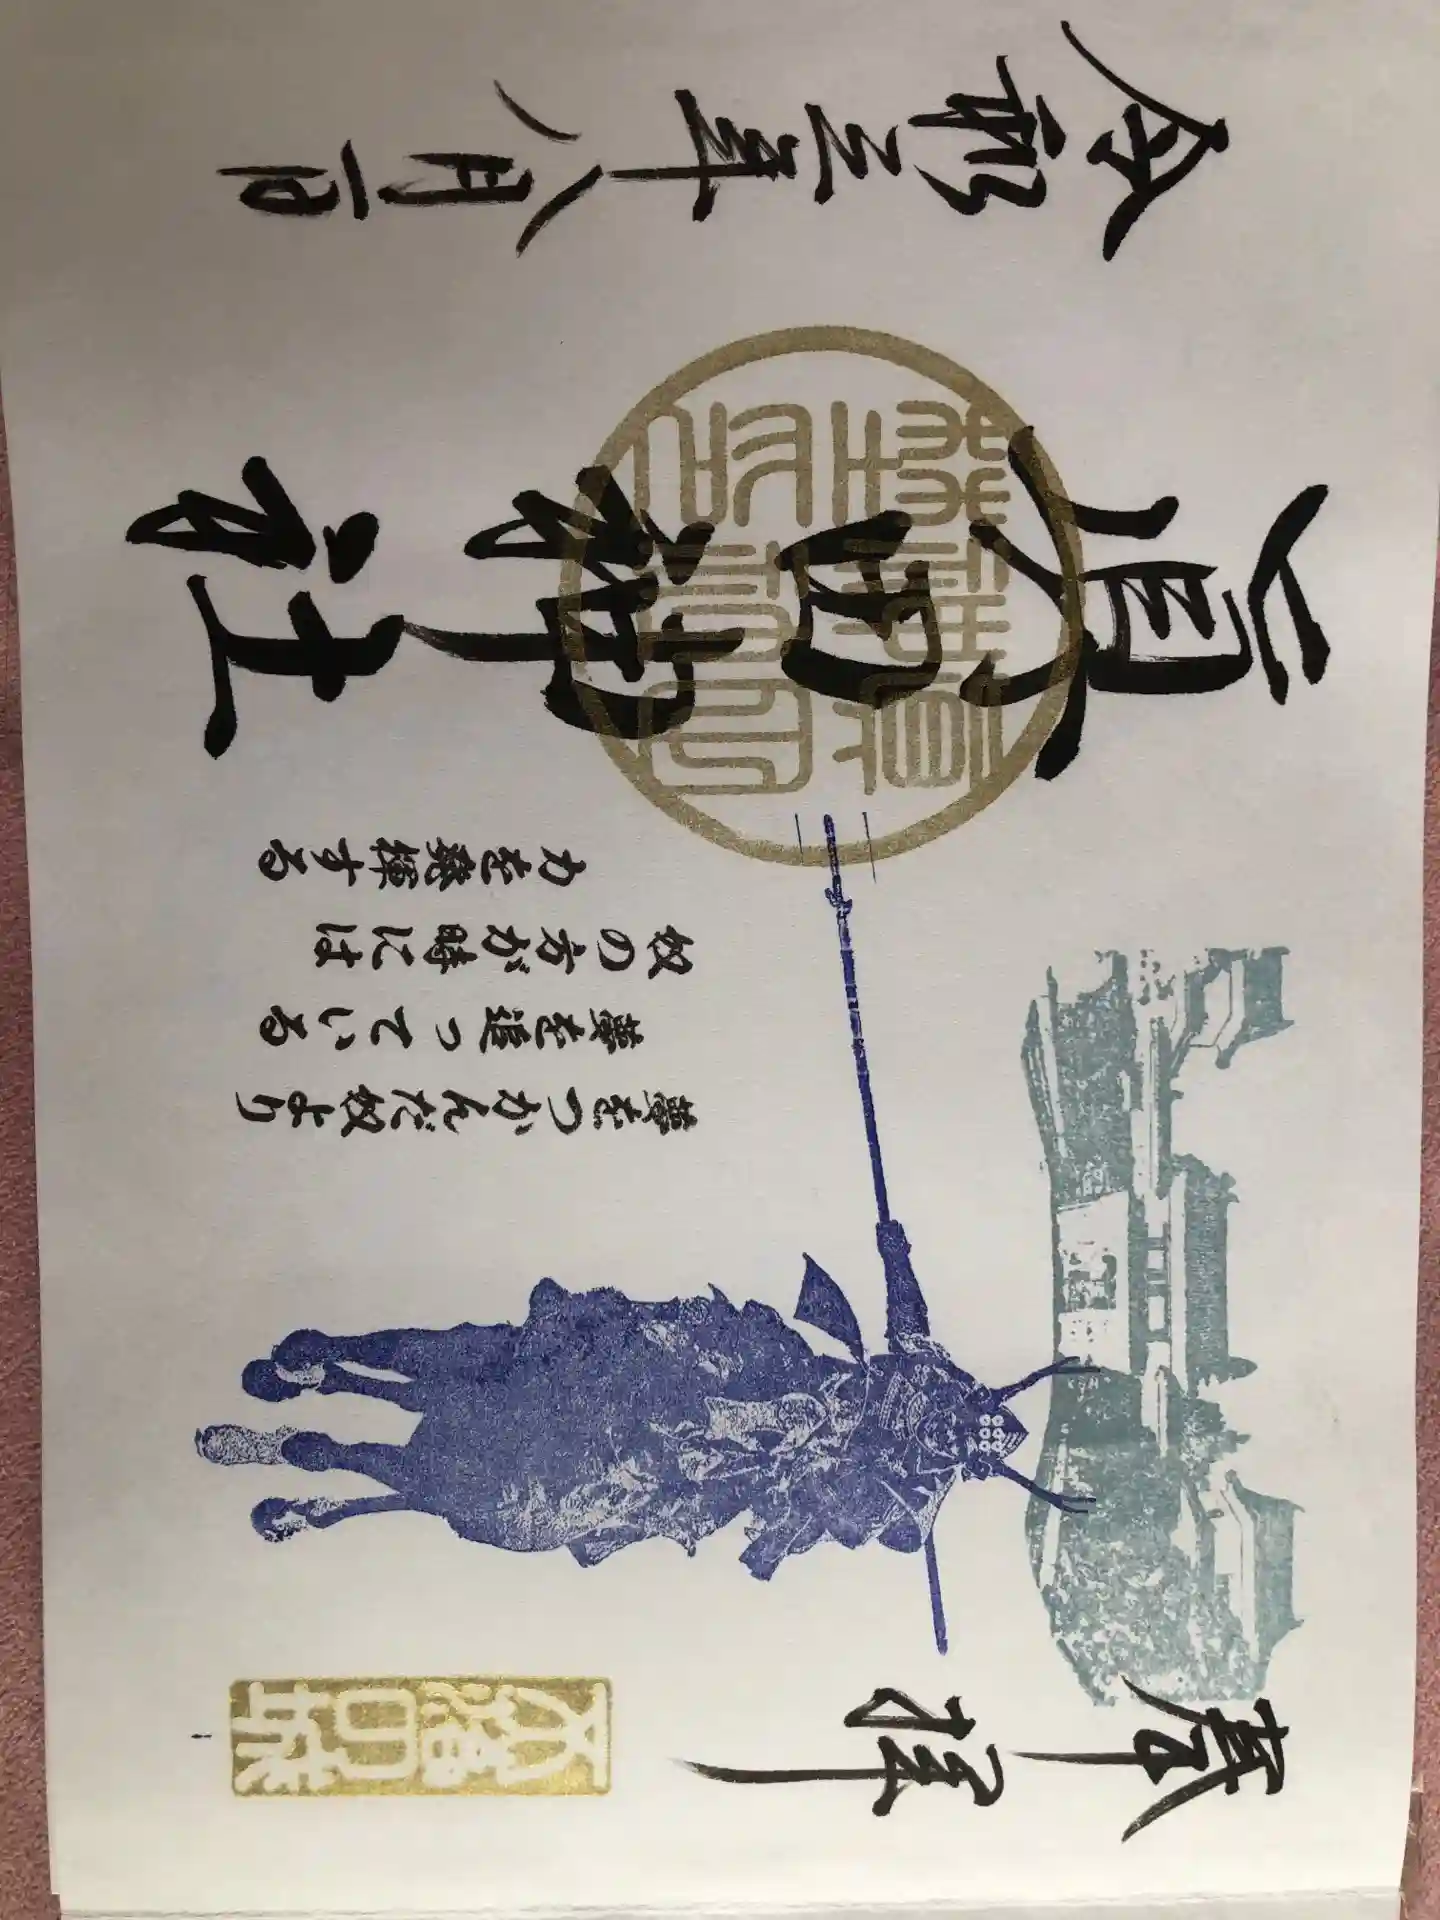 奉拝
不落の城
夢をつかんだ奴より
夢を追っている
奴の方が時には
力を発揮する
眞田神社
令和三年八月一日